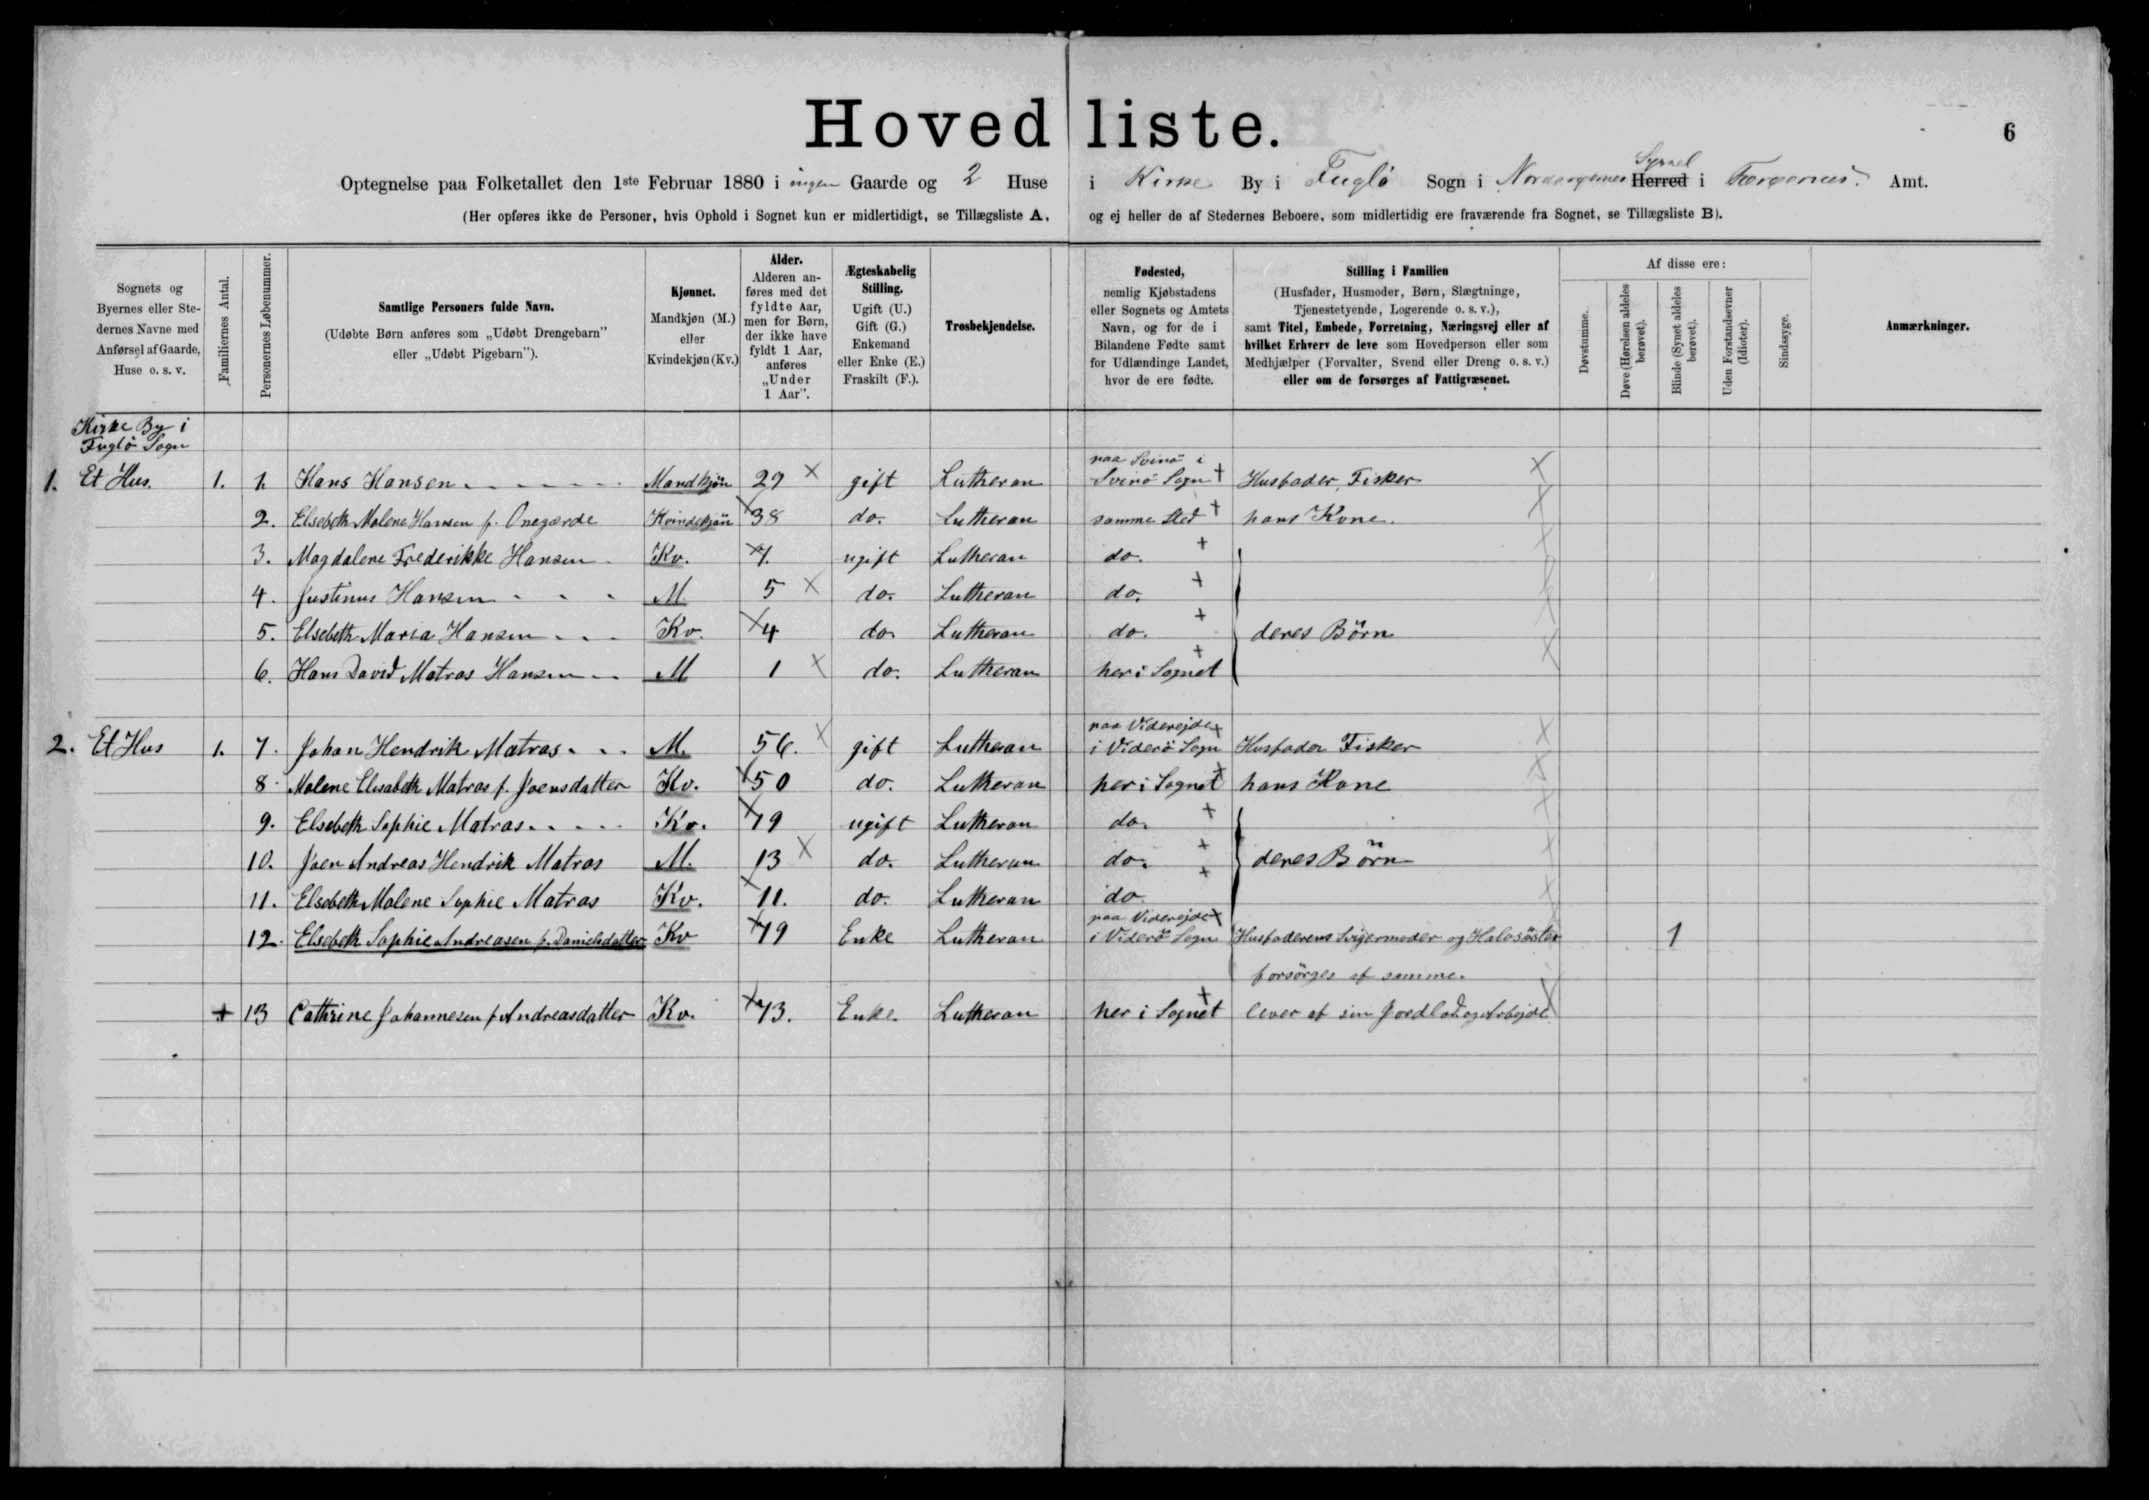 Hovedliste.
6
Optegnelse paa Folketallet den 1ste Februar 1880 i ingen Gaarde og 2 Huse i Kirke By i Fuglö Sogn i Norderøernes Herred Syssel i Færøernes Amt.
(Her opføres ikke de Personer, hvis Ophold i Sognet kun er midlertidigt, se Tillægsliste A, og ej heller de af Stedernes Beboere, som midlertidig ere fraværende fra Sognet, se Tillægsliste B).
Sognets og Byernes eller Stedernes Navne med Anførsel af Gaarde, Huse o. s. v.
Familiernes Antal.
Personernes Løbenummer.
Samtlige Personers fulde Navn.
(Udøbte Børn anføres som „Udøbt Drengebarn" eller „Udøbt Pigebarn").
Kjønnet.
Mandkjøn (M.) eller Kvindekjøn (Kv.)
Alder.
Alderen anføres med det fyldte Aar, men for Børn, der ikke have fyldt 1 Aar, anføres „Under 1 Aar".
Ægteskabelig Stilling.
Ugift (U.) Gift (G.) Enkemand eller Enke (E.) Fraskilt (F.).
Trosbekjendelse.
Fødested,
nemlig Kjøbstadens eller Sognets og Amtets Navn, og for de i Bilandene Fødte samt for Udlændinge Landet, hvor de ere fødte.
Stilling i Familien
(Husfader, Husmoder, Børn, Slægtninge, Tjenestetyende, Logerende o. s. v.), samt Titel, Embede, Forretning, Næringsvej eller af hvilket Erhverv de leve som Hovedperson eller som Medhjælper (Forvalter, Svend eller Dreng o. s. v.) eller om de forsørges af Fattigvæsenet.
Af disse ere:
Døvstumme.
Døve (Hørelsen aldeles berøvet).
Blinde (Synet aldeles berøvet).
Uden Forstandsevner (Idioter).
Sindssyge.
Anmærkninger.
Kirke By i
Fuglö Sogn
1. Et Hus. 1. 1. Hans Hansen Mandkjön 29 × gift Lutheran paa Svinö i Svinö Sogn + Husfader, Fisker ×
2. Elsebeth Malene Hansen f. Onegærde Kvindekjön × 38 do. Lutheran samme Sted + hans Kone. ×
3. Magdalene Frederikke Hansen Kv. × 7. ugift Lutheran do. + ×
4. Justinus Hansen M 5 × do. Lutheran do. + ×
5. Elsebeth Maria Hansen Kv. × 4 do. Lutheran do. + deres Börn ×
6. Hans David Matras Hansen M 1 × do. Lutheran her i Sognet + ×
2. Et Hus 1. 7. Johan Hendrik Matras M. 56. × gift Lutheran paa Viderejde + i Viderö Sogn Husfader Fisker ×
8. Malene Elisabeth Matras f. Joensdatter Kv. × 50 do. Lutheran her i Sognet + hans Kone ×
9. Elsebeth Sophie Matras Kv. × 19 ugift Lutheran do. + ×
10. Joen Andreas Hendrik Matras M. 13 × do. Lutheran do. + deres Börn ×
11. Elsebeth Malene Sophie Matras Kv. × 11. do. Lutheran do + ×
12. Elsebeth Sophie Andreasen f. Danielsdatter Kv × 79 Enke Lutheran paa Viderejde + i Viderö Sogn Husfaderens Svigermoder og Halvsöster 1
forsörges af samme.
+ 13 Cathrine Johannesen f Andreasdatter Kv. × 73. Enke Lutheran her i Sognet + lever af sin Jordlod og Arbejde ×